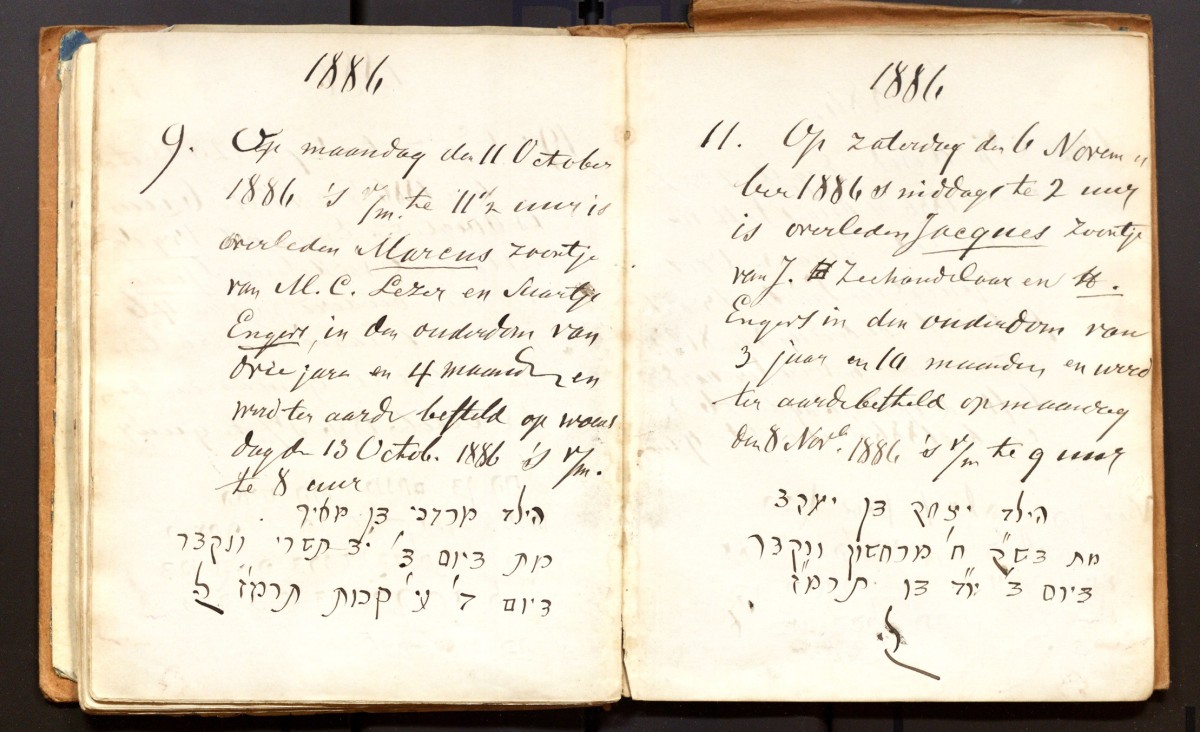 1886
9. Op maandag den 11 October
1886 's v/m. te 11 1/2 uur is
overleden Marcus zoontje
van M. C. Lezer en Saartje
Engers, in den ouderdom van
drie jara en 4 maanden en
werd ter aarde besteld op woens
dag den 13 Octob. 1886 's v/m.
te 8 uur
הילד מרדכי בן מאיר
מת ביום ב' י״ב תשרי ונקבר
ביום ד' עי' סכות תרמ״ז ל
1886
11. Op zaterdag den 6 Novem "
ber 1886 s middags te 2 uur
is overleden Jacques zoontje
van J. Zeehandelaar en
Engers in den ouderdom van
3 jaar en 10 maanden en werd
ter aarde besteld op maandag
den 8 Novb. 1886 's v/m te 9 uur
הילד יצחק בן יעקב
מת בש״ק ח' מרחשון ונקבר
ביום ב' יו״ד בו תרמ״ז
ל